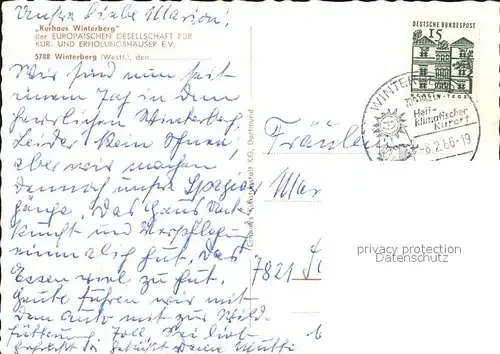 Unsere liebe Marion!
"Kurhaus Winterberg"
der EUROPÄISCHEN GESELLSCHAFT FÜR
KUR- UND ERHOLUNGSHÄUSER E.V.
5788 Winterberg (Westf.), den
Wir sind nun seit
einem Tag in dem
herrlichen Winterberg,
Leider kein Schnee,
aber wir machen
dennoch unsre Spazier
gänge. Das Haus Unter
kunft und Verpflegung
einmalig gut. Das
Essen viel zu gut.
Heute fuhren wir mit
dem Auto mit zur Wild
fütterung. Toll. Sei lieb
gegrüßt Deine Mutti
Cramers Kunstanstalt KG, Dortmund
DEUTSCHE BUNDESPOST
15
TEGEL
WINTERBERG
Heil-
klimatischer
Kurort
-8.2.66-19
Fräulein
Mar
7821
privacy protection
Datenschutz